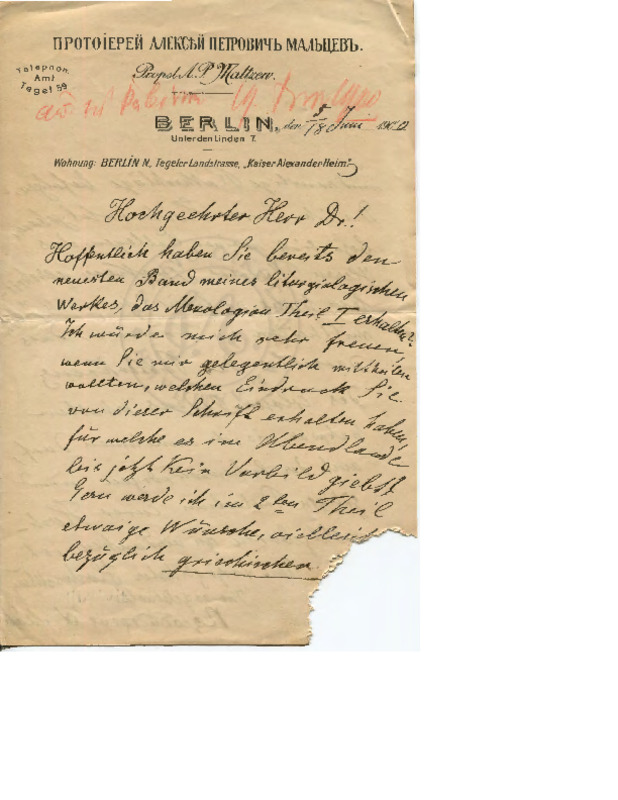 ПРОТОІЕРЕЙ АЛЕКСѢЙ ПЕТРОВИЧЪ МАЛЬЦЕВЪ.
Telephon
Amt
Tegel 59
Propst A. P. Maltzew.
BERLIN, den 5/18 Juni 1900
Unter den Linden 7.
Wohnung: BERLIN N., Tegeler Landstrasse, „Kaiser Alexander Heim".
Hochgeehrter Herr Dr.!
Hoffentlich haben Sie bereits den
neuesten Band meines liturgiologischen
Werkes, das Menologion Theil I erhalten?
Ich würde mich sehr freuen,
wenn Sie mir gelegentlich mittheilen
wollten, welchen Eindruck Sie
von dieser Schrift erhalten haben,
für welche es im Abendlande
bis jetzt kein Vorbild giebt!
Gern werde ich im 2ten Theil
etwaige Wünsche, vielleic
bezüglich griechischen